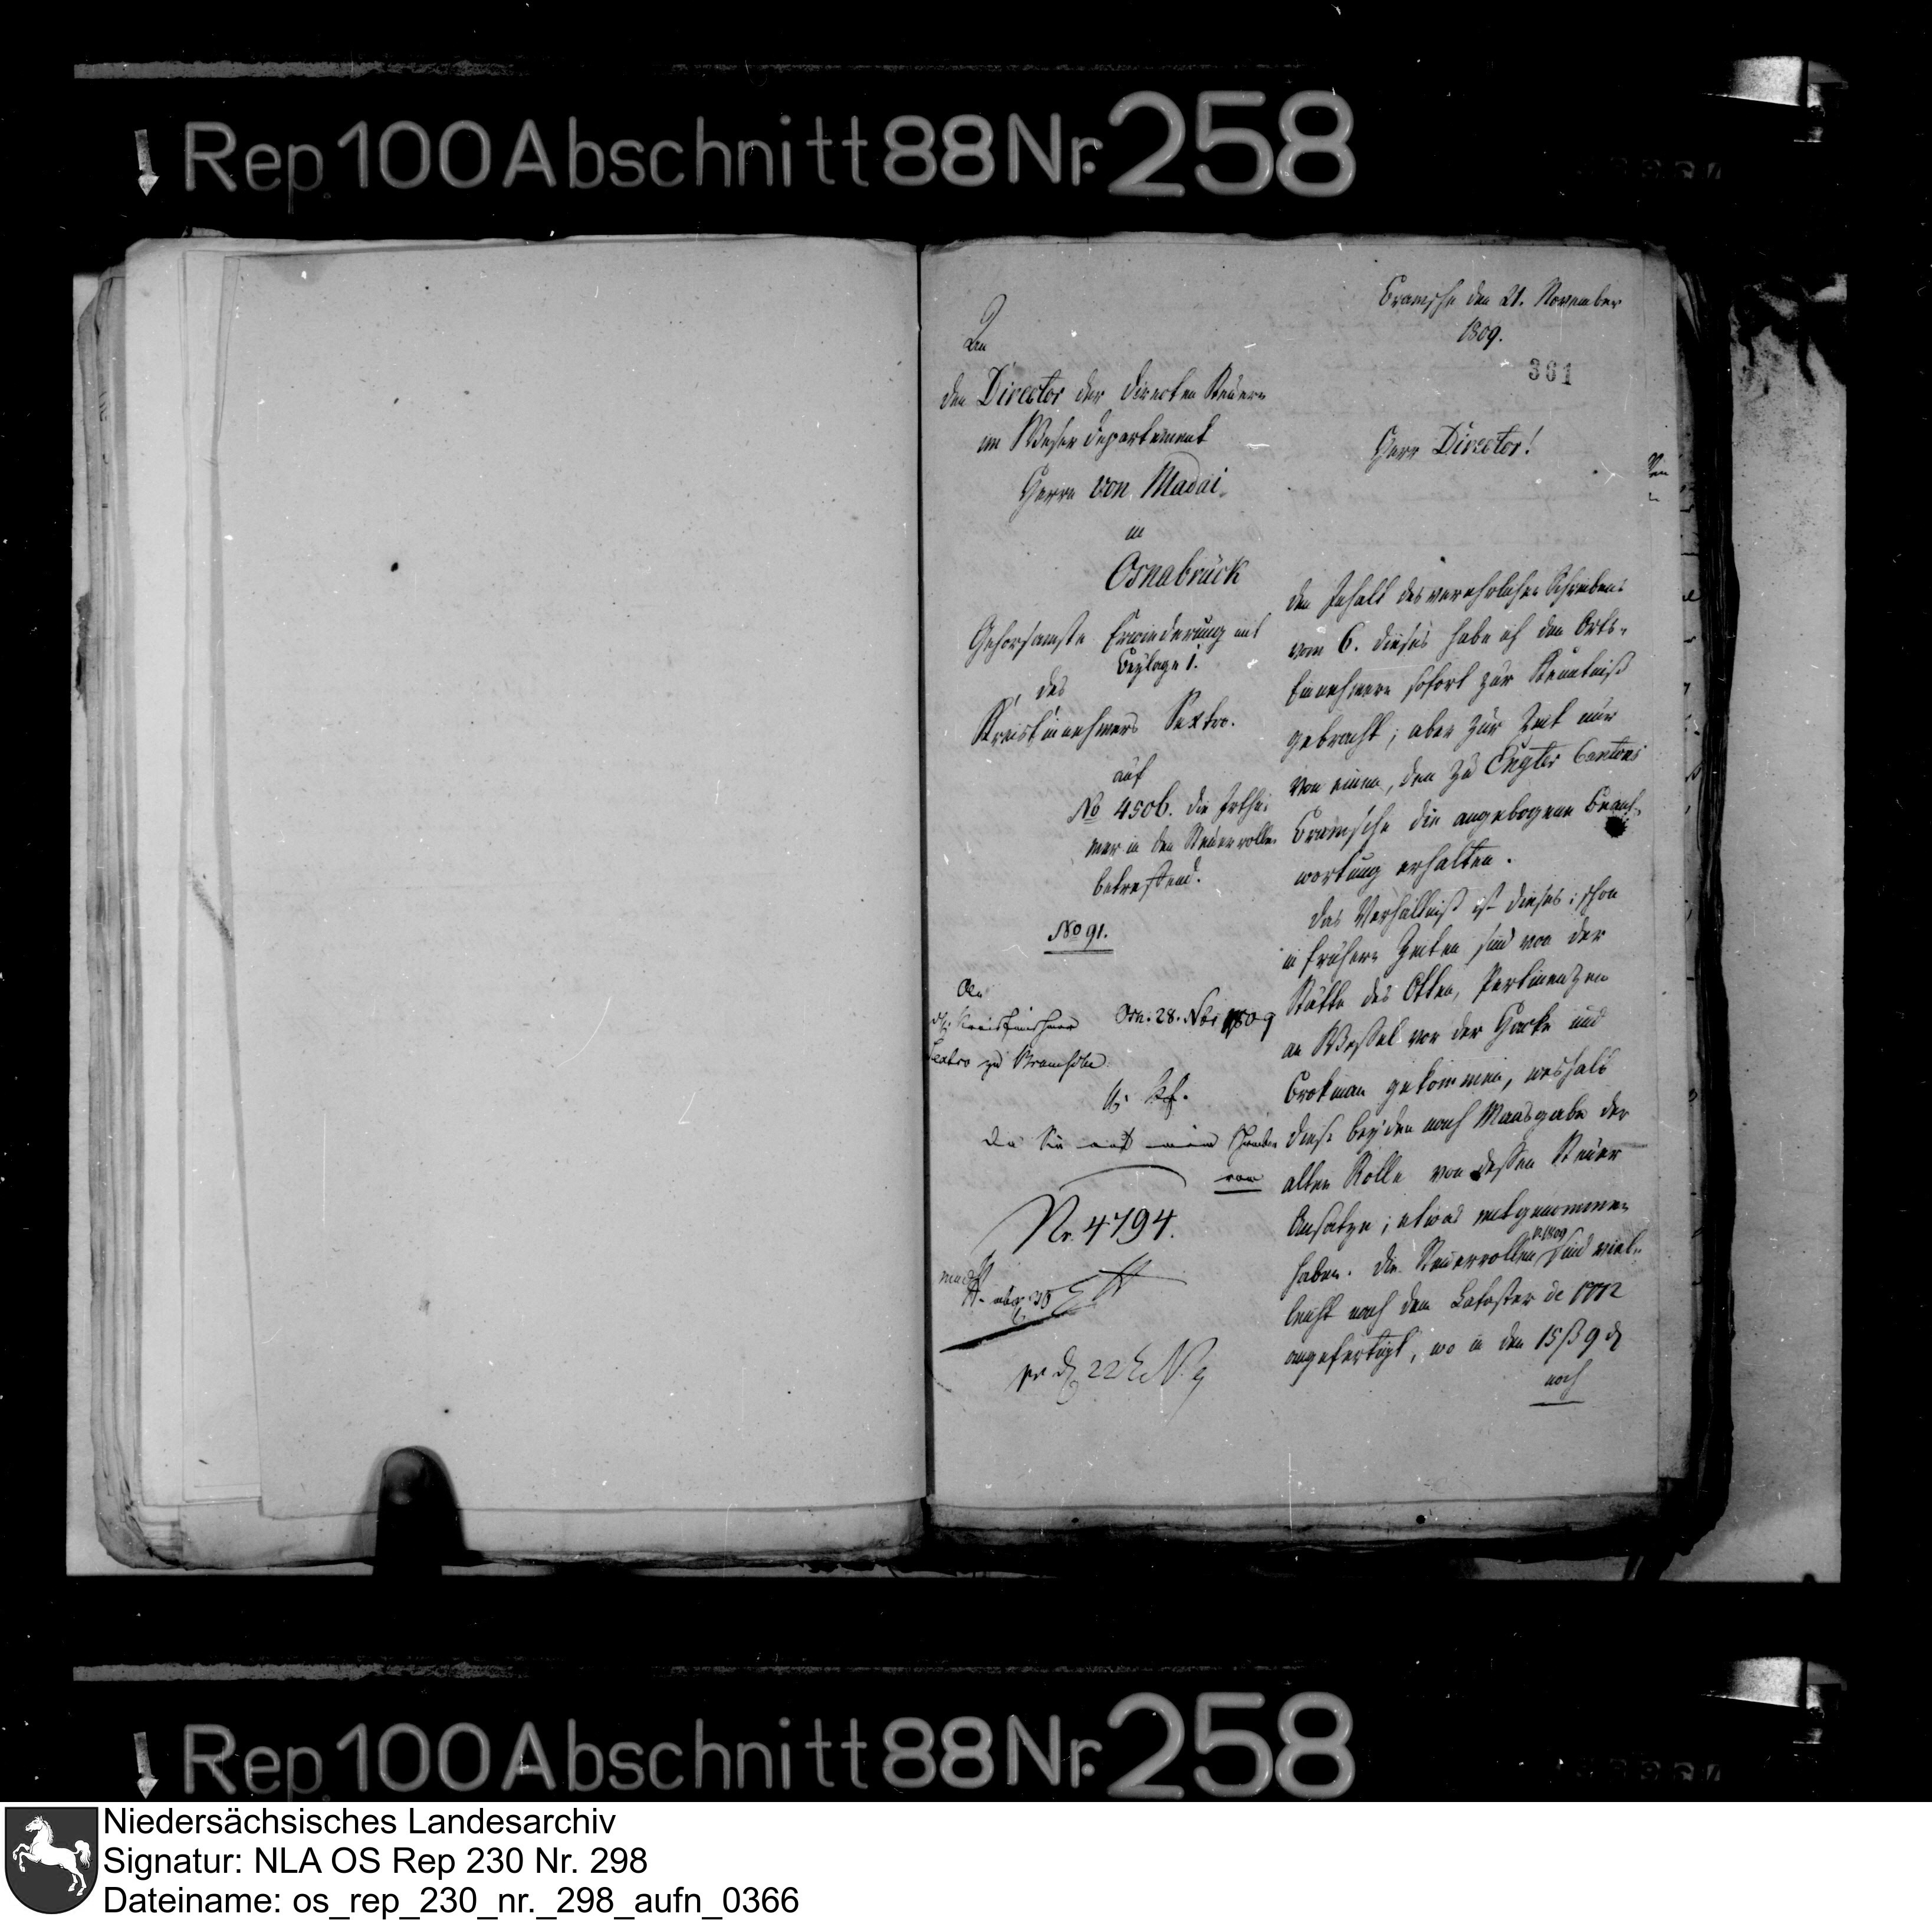 Rep. 100 Abschnitt 88 Nr. 258
Bramsche den 21. November
1809.
361
An
den Director der directen Steuern
im Weser Departement
Herrn von Madai
in
Osnabrück
Gehorsamste Erwiederung mit
Beylage 1.
des
Kreiseinnehmers Sextro.
auf
No 4506. die Irthü-
mer in den Steuerrollen
betreffend.
No 91.
An
Kreiseinnehmer
Sextro zu Bramsche
Osn. 28. Nbr 1809
Da Sie auf mein Schreiben
vom
Nr. 4794.
Herr Director!
Den Inhalt des verehrlichen Schreibens
vom 6. dieses habe ich den Orts-
Einnehmern sofort zur Kenntniß
gebracht; aber zur Zeit nur
von einem, dem zu Engter Cantons
Bramsche die angebogene Beant-
wortung erhalten.
Das Verhältniß ist dieses: schon
in frühern Zeiten sind von der
Stätte des Otten, Pertinenzen
an Wessel vor der Harke und
Brokman gekommen, weshalb
diese beyden nach Maasgabe der
alten Rolle von dessen Steuer
Ansatze, etwas mitgenommen
haben. Die Steuerrollen p. 1809 sind viel-
leicht nach dem Cataster de 1772
angefertigt, wo in den 15 ß 9 d
noch
Rep. 100 Abschnitt 88 Nr. 258
Niedersächsisches Landesarchiv
Signatur: NLA OS Rep 230 Nr. 298
Dateiname: os_rep_230_nr._298_aufn_0366